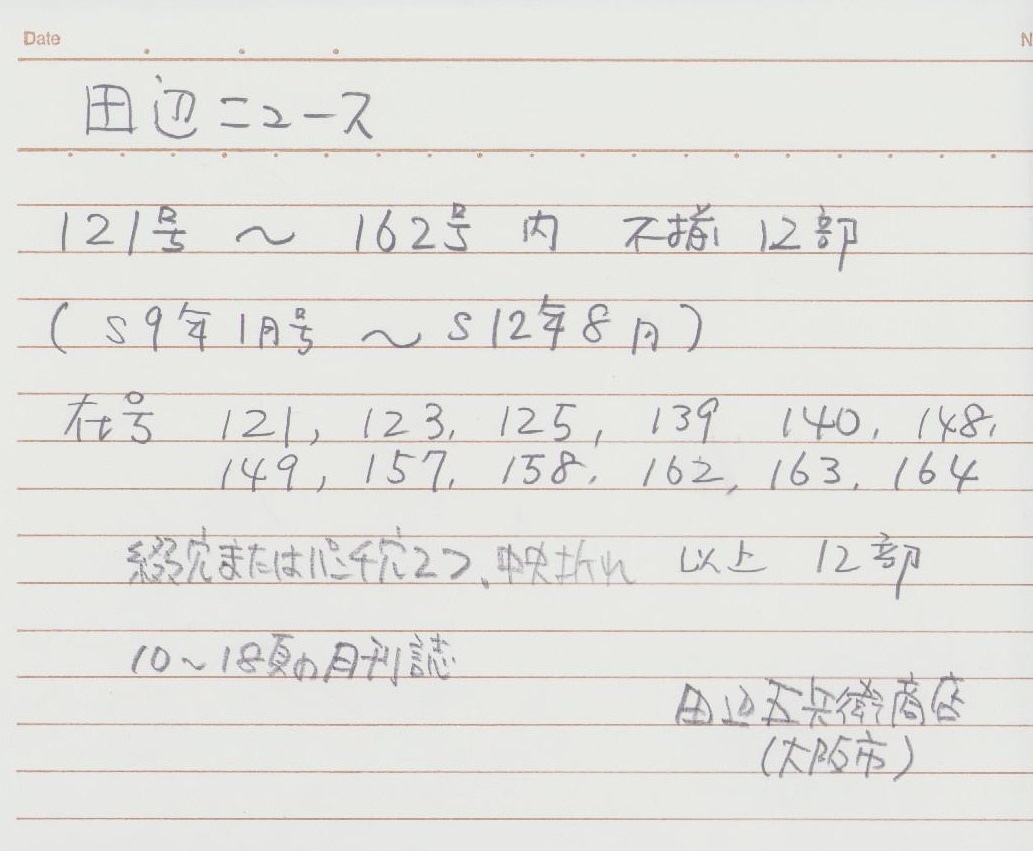 Date
田辺ニュース
121号 ～ 162号 内 不揃 12部
(S9年1月号 ～ S12年8月)
在号 121, 123, 125, 139 140, 148,
149, 157, 158, 162, 163, 164
綴穴またはパンチ穴2つ、中央折れ 以上 12部
10～18頁の月刊誌
田辺五兵衛商店
(大阪市)